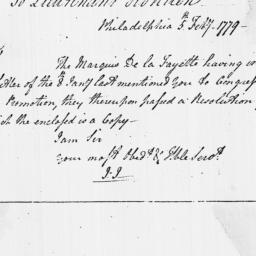 To Lieutenant
Philadelphia 5th Feby. 1779—
The Marquis De la Fayette having in
letter of the 8th Jany last mentioned you to Congress
Promotion, they thereupon passed a Resolution
ch the enclosed is a Copy—
I am Sir
your most Obedt & Hble Servt.
J.J